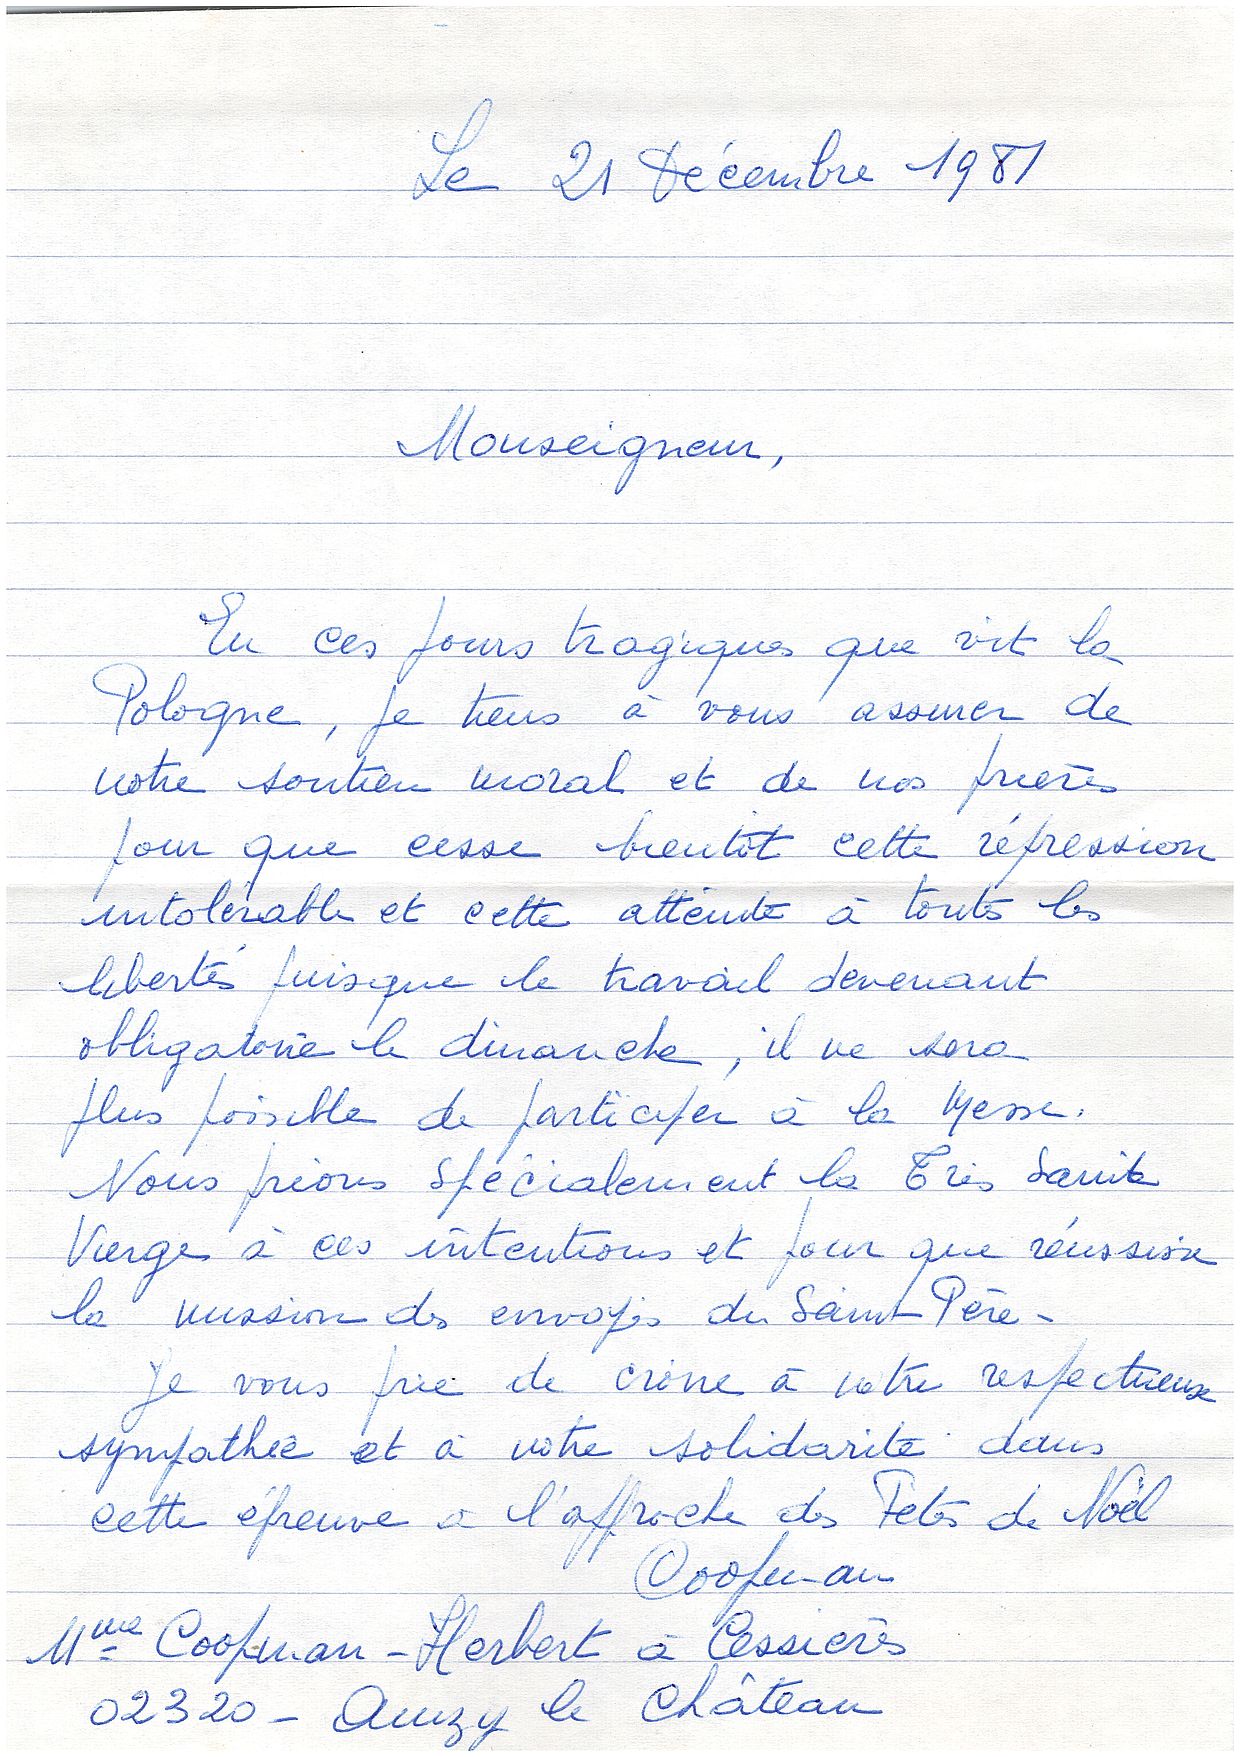 Le 21 Décembre 1981
Monseigneur,
En ces jours tragiques que vit la
Pologne, je tiens à vous assurer de
notre soutien moral et de nos prières
pour que cesse bientôt cette répression
intolérable et cette atteinte à toutes les
libertés puisque le travail devenant
obligatoire le dimanche, il ne sera
plus possible de participer à la Messe.
Nous prions spécialement la Très Sainte
Vierge à ces intentions et pour que réussisse
la mission des envoyés du Saint Père -
Je vous prie de croire à notre respectueuse
sympathie et à notre solidarité dans
cette épreuve à l'approche des Fêtes de Noël
Coopman
Mme Coopman - Herbert à Cessières
02320 - Anizy le Château